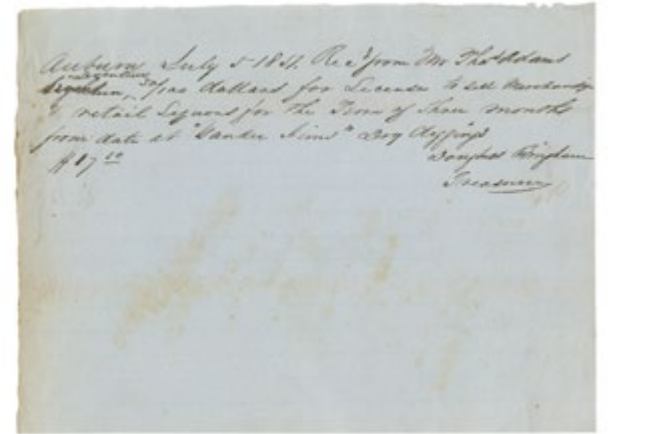 Auburn July 5 1851. Rec'd from Mr Thos Adams
Seventeen 50/100 dollars for License to sell Merchandize
& retail Liquors for the Term of Three months
from date at "Yankee Jims" Dry Diggings
$17 50 Douglas Bingham
Treasurer